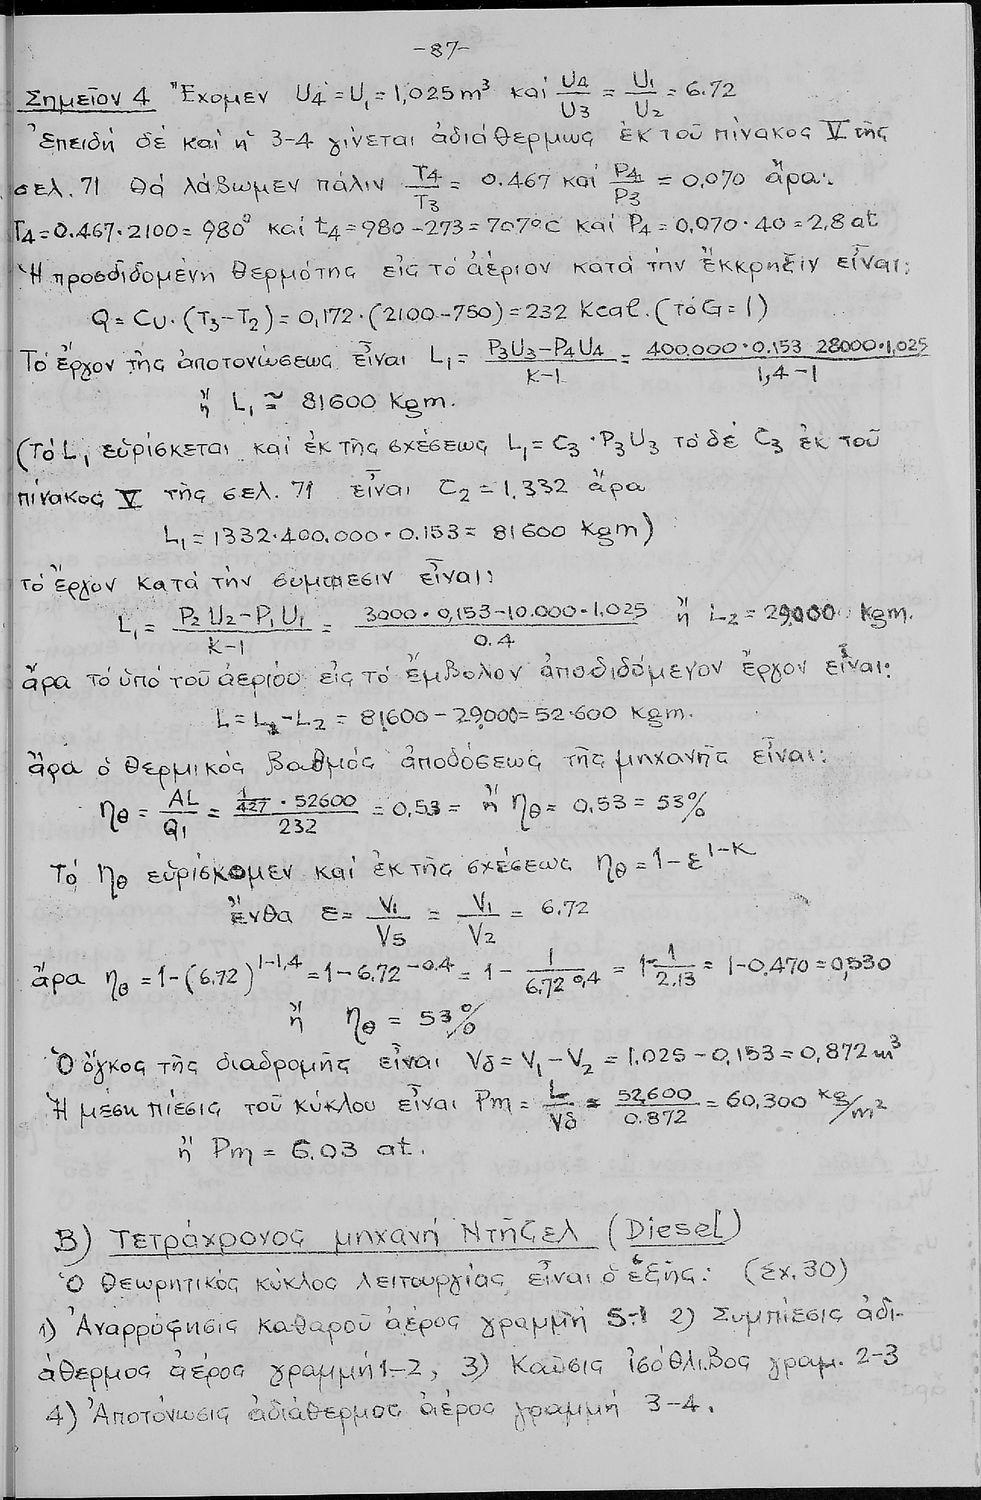 -87-
Σημεῖον 4 Ἔχομεν U4 = U1 = 1,025 m³ καί U4/U3 = U1/U2 = 6.72
Ἐπειδή δέ καί ἡ 3-4 γίνεται ἀδιάθερμως ἐκ τοῦ πίνακος V τῆς
σελ. 71 θά λάβωμεν πάλιν T4/T3 = 0.467 καί P4/P3 = 0,070 ἄρα:
T4 = 0.467·2100 = 980° καί t4 = 980-273 = 707°C καί P4 = 0,070·40 = 2,8 at
Ἡ προσδιδομένη θερμότης εἰς τό ἀέριον κατά τήν ἔκκρηξιν εἶναι:
Q = Cυ·(T3-T2) = 0,172·(2100-750) = 232 Kcal. (τό G=1)
Τό ἔργον τῆς ἀποτονώσεως εἶναι L1 = P3U3-P4U4/K-1 = 400.000·0.153 28000·1,025/1,4-1
ἤ L1 ≃ 81600 Kgm.
(Τό L1 εὑρίσκεται καί ἐκ τῆς σχέσεως L1 = C3·P3U3 τό δέ C3 ἐκ τοῦ
πίνακος V τῆς σελ. 71 εἶναι C2 = 1.332 ἄρα
L1 = 1332·400.000·0.153 = 81600 Kgm)
τό ἔργον κατά τήν συμπιεσιν εἶναι:
L1 = P2U2-P1U1/K-1 = 3000·0,153-10.000·1.025/0.4 ἤ L2 = 29000 Kgm.
ἄρα τό ὑπό τοῦ ἀερίου εἰς τό ἔμβολον ἀποδιδόμενον ἔργον εἶναι:
L = L1-L2 = 81600-29000 = 52·600 Kgm.
ἄρα ὁ θερμικός βαθμός ἀποδόσεως τῆς μηχανῆς εἶναι:
ηθ = AL/Q1 = 1/427·52600/232 = 0,53 = ἤ ηθ = 0,53 = 53%
Τό ηθ εὑρίσκομεν καί ἐκ τῆς σχέσεως ηθ = 1-ε^1-K
ἔνθα ε = V1/V5 = V1/V2 = 6.72
ἄρα ηθ = 1-(6.72)^1-1,4 = 1-6.72^-0.4 = 1- 1/6.72^0,4 = 1-1/2.13 = 1-0.470 = 0,530
ἤ ηθ = 53%
Ὁ ὄγκος τῆς διαδρομῆς εἶναι Vδ = V1-V2 = 1.025-0,153 = 0,872 m³
Ἡ μέση πίεσις τοῦ κύκλου εἶναι Pm = L/Vδ = 52,600/0.872 = 60,300 kg/m²
ἤ Pm = 6.03 at.
Β) Τετράχρονος μηχανή Ντῆζελ (Diesel)
Ὁ θεωρητικός κύκλος λειτουργίας εἶναι ὁ ἑξῆς: (Σχ.30)
1) Ἀναρρόφησις καθαροῦ ἀέρος γραμμή 5-1 2) Συμπίεσις ἀδι-
άθερμος ἀέρος γραμμή 1-2, 3) Καῦσις ἰσόθλιβος γραμ. 2-3
4) Ἀποτόνωσις ἀδιάθερμος ἀέρος γραμμή 3-4.